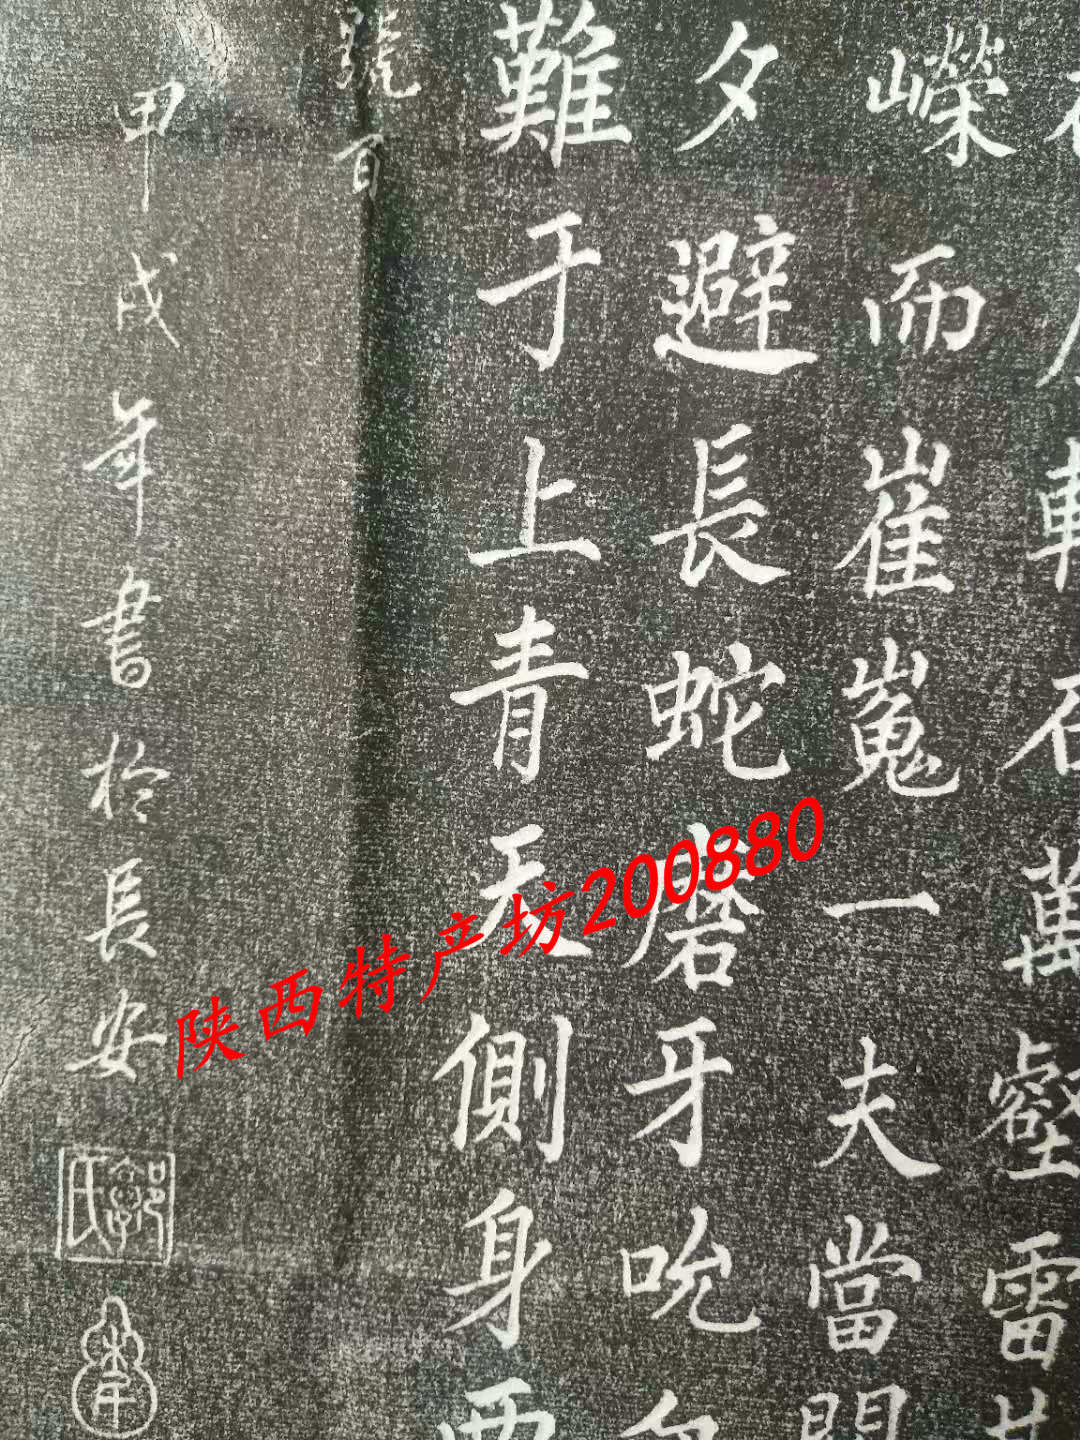 石萬壑雷
嶸而崔嵬一夫當
夕避長蛇磨牙吮
難于上青天側身西
號
甲戌年書於長安
陕西特产坊200880